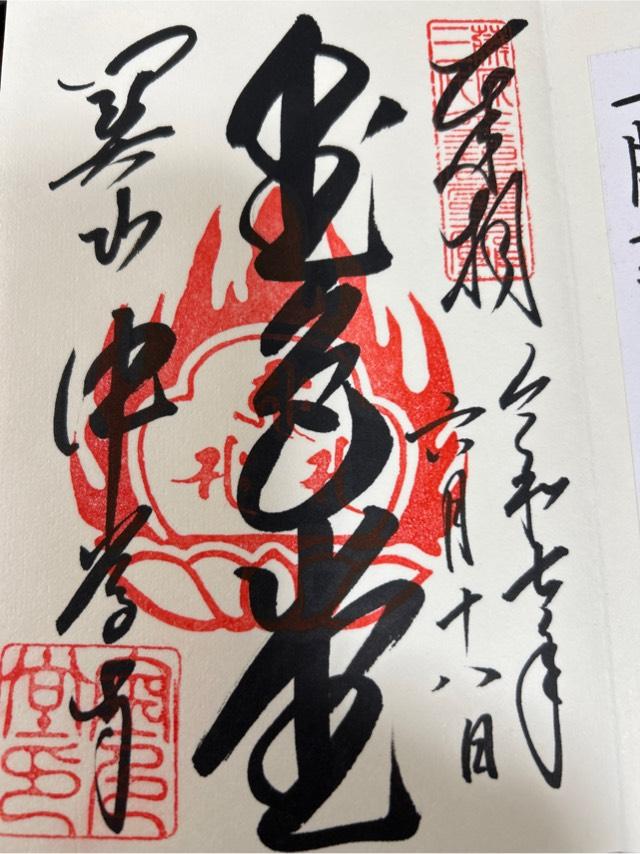 奉拝
令和七年
六月十八日
金色堂
関山
中尊寺